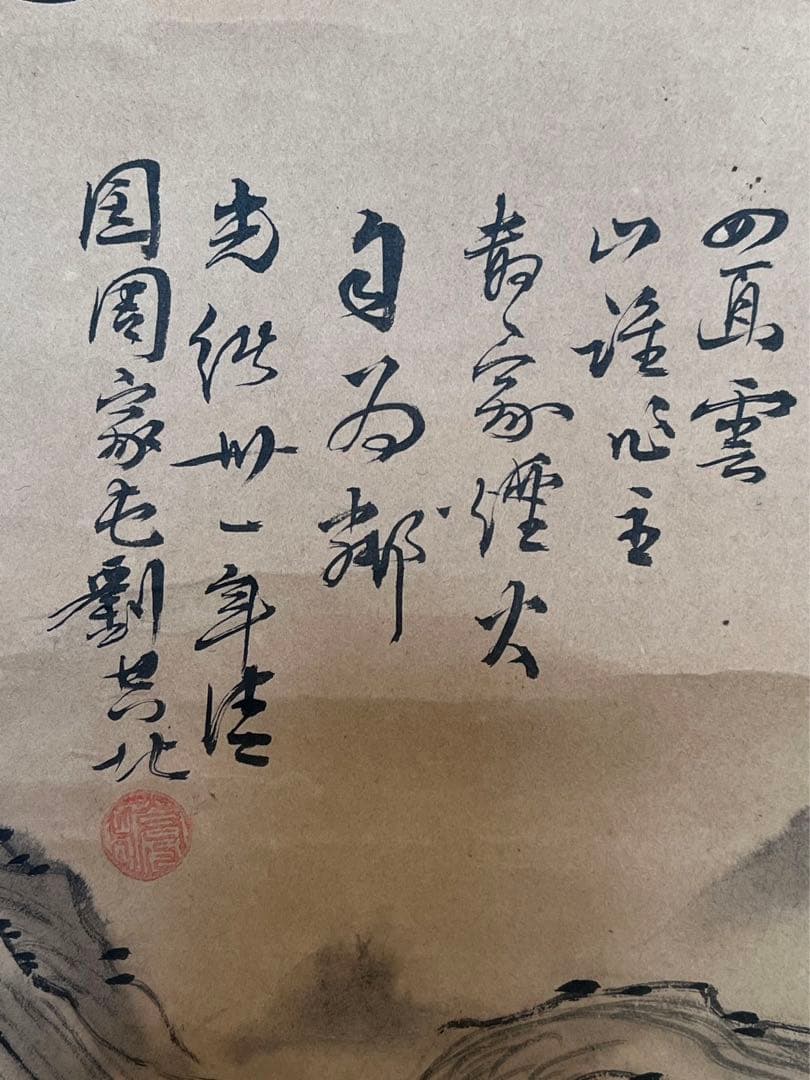 四面雲
山誰作主
數家煙火
自為鄰
光緒卅一年清
國周家屯劉共北